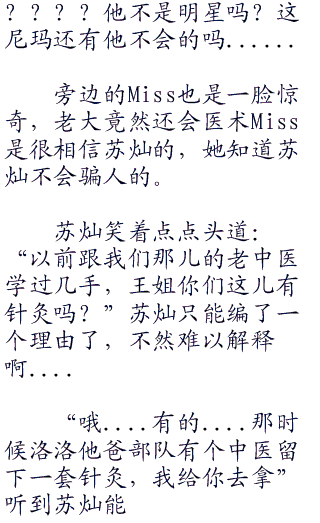 ？？？？他不是明星吗？这
尼玛还有他不会的吗......
旁边的Miss也是一脸惊
奇，老大竟然还会医术Miss
是很相信苏灿的，她知道苏
灿不会骗人的。
苏灿笑着点点头道：
“以前跟我们那儿的老中医
学过几手，王姐你们这儿有
针灸吗？”苏灿只能编了一
个理由了，不然难以解释
啊....
“哦....有的....那时
候洛洛他爸部队有个中医留
下一套针灸，我给你去拿”
听到苏灿能